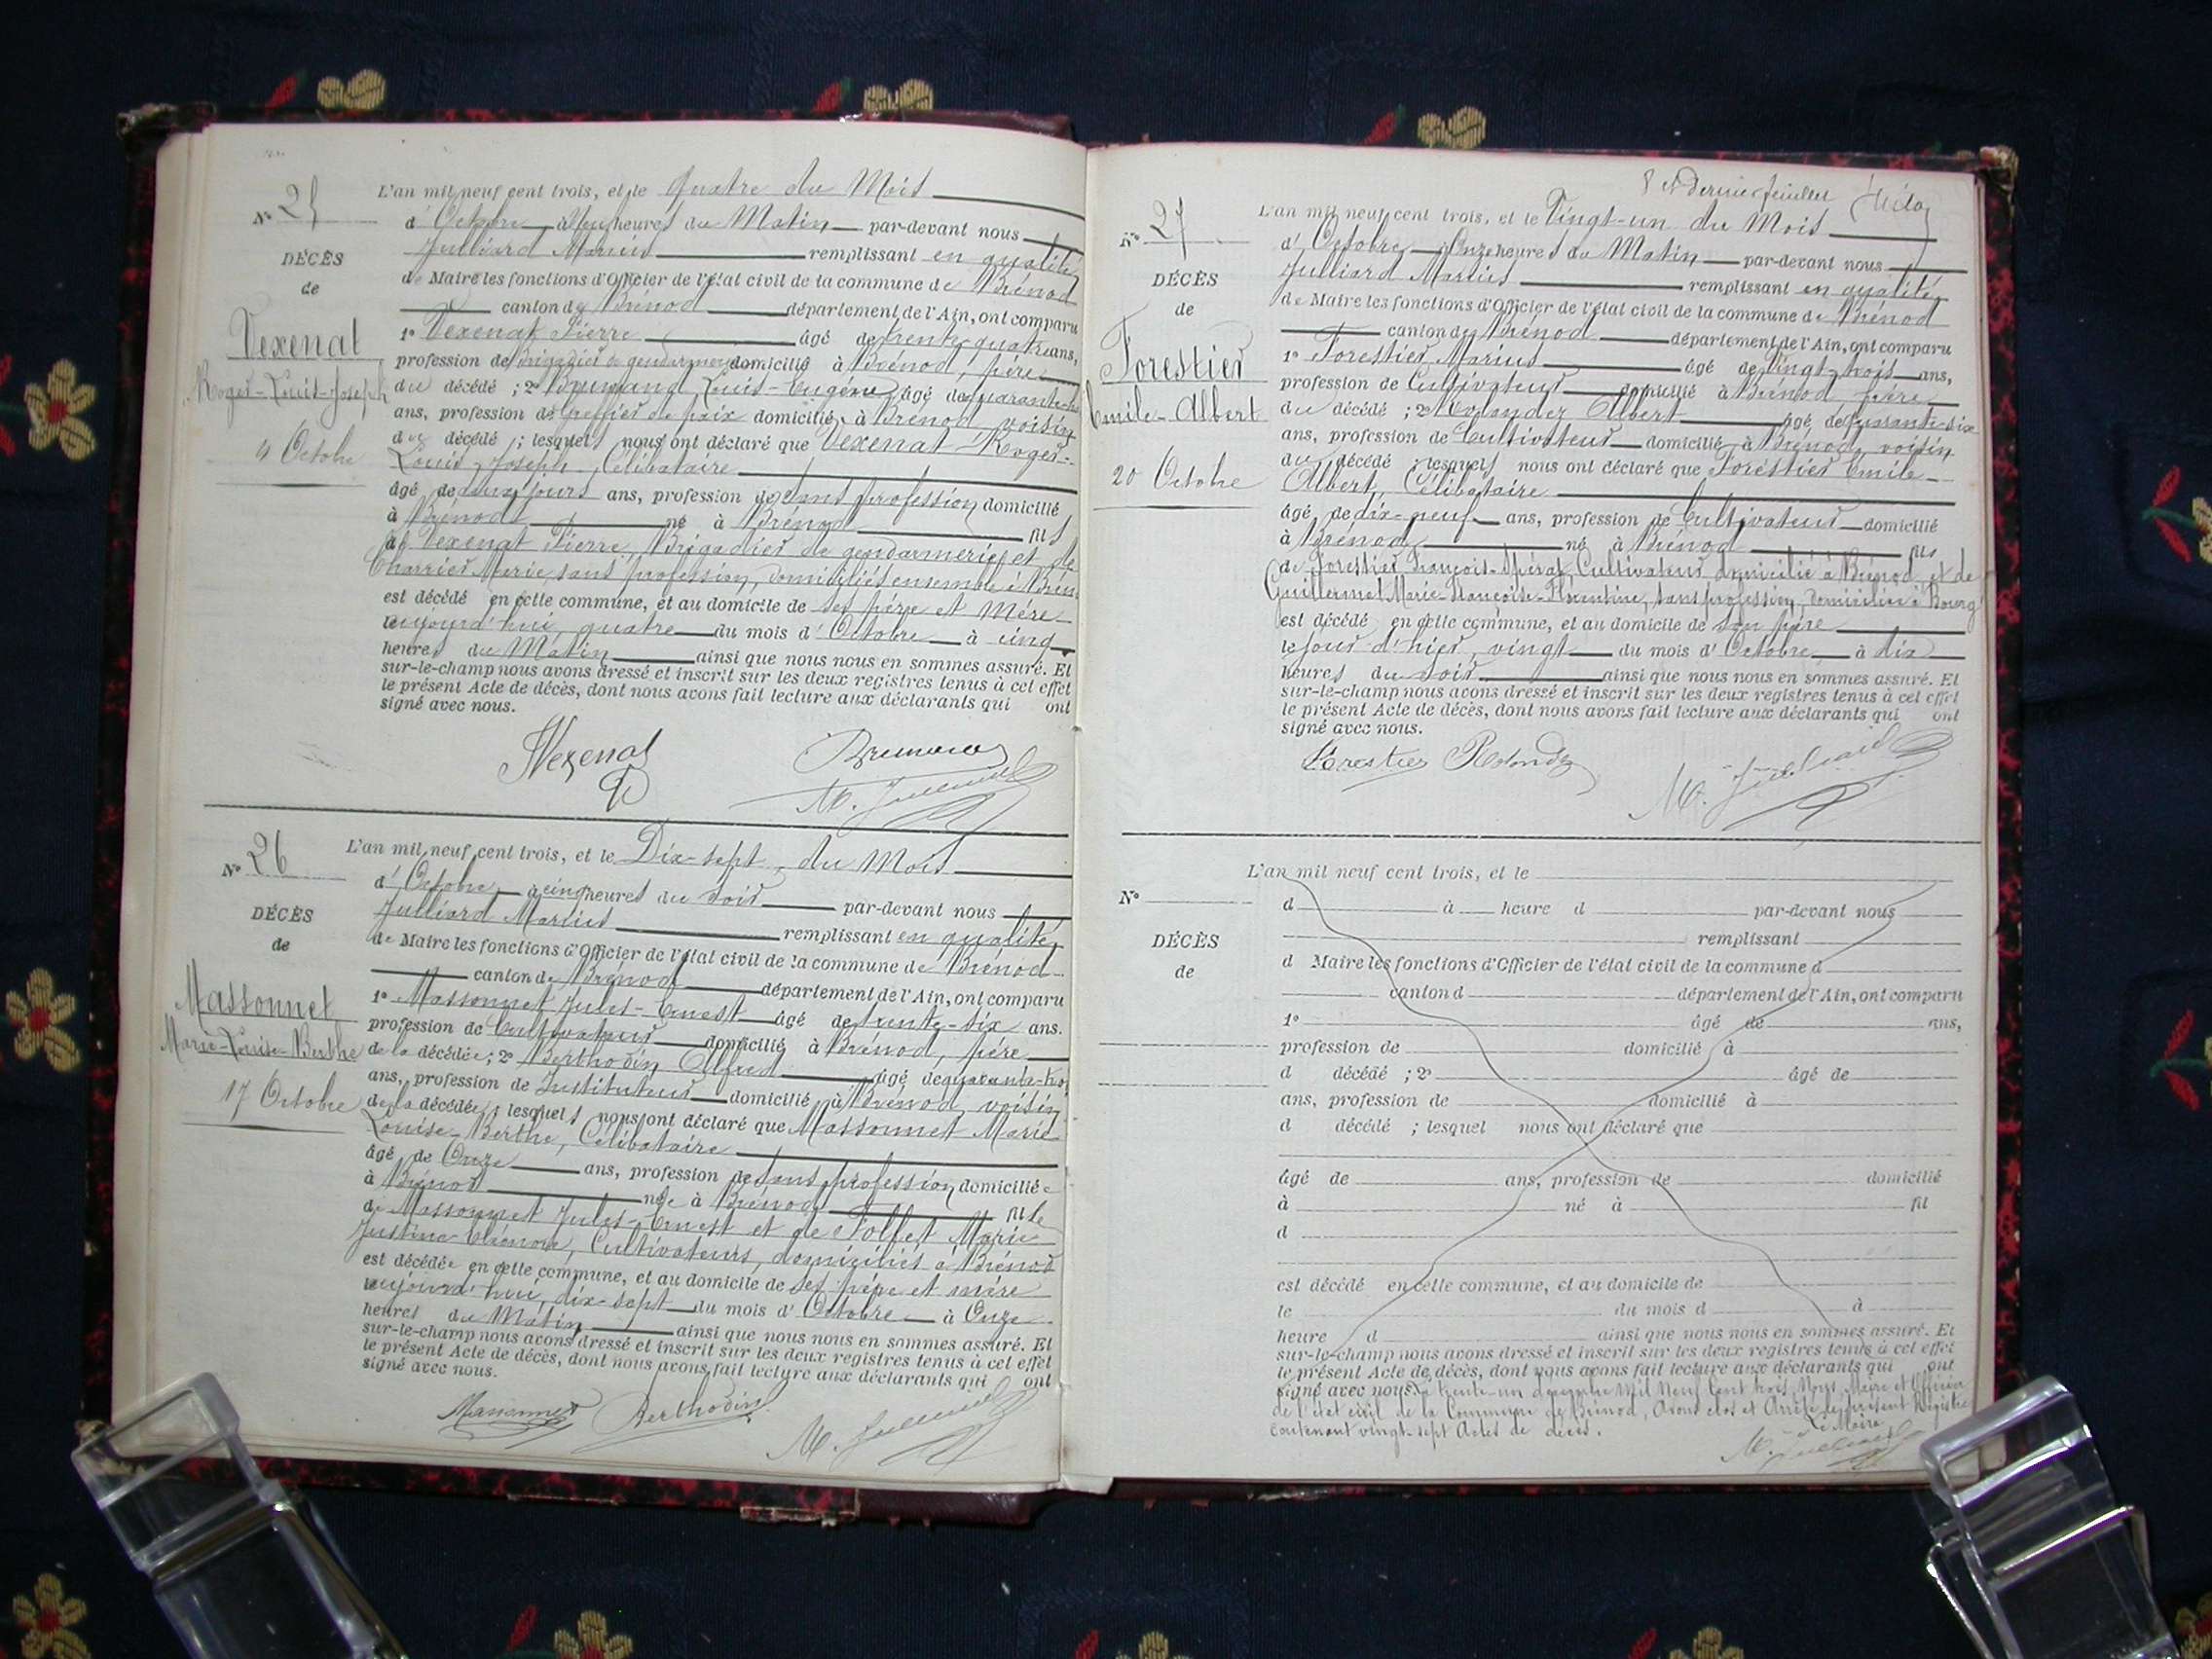 N° 25
DÉCÈS
de
Vexenat
Roger-Louis-Joseph
4 Octobre
L'an mil neuf cent trois, et le Quatre du Mois
d'Octobre à Neuf heures du Matin par-devant nous
Julliard Marius remplissant en qualité
de Maire les fonctions d'Officier de l'état civil de la commune de Brénod
canton de Brénod département de l'Ain, ont comparu
1° Vexenat Pierre âgé de trente quatre ans,
profession de Brigadier de gendarmerie domicilié à Brénod, père
du décédé ; 2° Brunand Louis-Eugène âgé de quarante
ans, profession de greffier de paix domicilié à Brénod voisin
du décédé ; lesquels nous ont déclaré que Vexenat Roger-
Louis Joseph, Célibataire
âgé de deux jours ans, profession de sans profession domicilié
à Brénod né à Brénod fils
de Vexenat Pierre, Brigadier de gendarmerie et de
Charrier Marie, sans profession, domiciliés ensemble à Brénod
est décédé en cette commune, et au domicile de ses père et Mère
aujourd'hui, quatre du mois d'Octobre à cinq
heures du Matin ainsi que nous nous en sommes assuré. Et
sur-le-champ nous avons dressé et inscrit sur les deux registres tenus à cet effet
le présent Acte de décès, dont nous avons fait lecture aux déclarants qui ont
signé avec nous.
Vexenat
M. Julliard
N° 26
DÉCÈS
de
Massonnet
Marie-Louise-Berthe
17 Octobre
L'an mil neuf cent trois, et le Dix-sept du Mois
d'Octobre à cinq heures du soir par-devant nous
Julliard Marius remplissant en qualité
de Maire les fonctions d'Officier de l'état civil de la commune de Brénod
canton de Brénod département de l'Ain, ont comparu
1° Massonnet Jules-Ernest âgé de trente-six ans.
profession de Cultivateur domicilié à Brénod, père
de la décédée ; 2° Berthodin Alfred âgé de quarante-trois
ans, profession de Instituteur domicilié à Brénod voisin
de la décédée ; lesquels nous ont déclaré que Massonnet Marie
Louise-Berthe, Célibataire
âgé de Onze ans, profession de sans profession domiciliée
à Brénod née à Brénod fille
de Massonnet Jules-Ernest et de Follet Marie
Justine Eléonore, Cultivateurs, domiciliés à Brénod
est décédée en cette commune, et au domicile de ses père et mère
aujourd'hui, dix-sept du mois d'Octobre à Onze
heures du Matin ainsi que nous nous en sommes assuré. Et
sur-le-champ nous avons dressé et inscrit sur les deux registres tenus à cet effet
le présent Acte de décès, dont nous avons fait lecture aux déclarants qui ont
signé avec nous.
Massonnet Berthodin
M. Julliard
8 et dernier feuillet
N° 27
DÉCÈS
de
Forestier
Emile-Albert
20 Octobre
L'an mil neuf cent trois, et le Vingt-un du Mois
d'Octobre à Onze heures du Matin par-devant nous
Julliard Marius remplissant en qualité
de Maire les fonctions d'Officier de l'état civil de la commune de Brénod
canton de Brénod département de l'Ain, ont comparu
1° Forestier Marius âgé de Vingt-trois ans,
profession de Cultivateur domicilié à Brénod, frère
du décédé ; 2° Rolandez Albert âgé de quarante-six
ans, profession de Cultivateur domicilié à Brénod, voisin
du décédé ; lesquels nous ont déclaré que Forestier Emile-
Albert, Célibataire
âgé de dix-neuf ans, profession de Cultivateur domicilié
à Brénod né à Brénod fils
de Forestier François-Spérat, Cultivateur domicilié à Brénod et de
Guillermet Marie-Françoise-Florentine, sans profession, domiciliée à Bourg
est décédé en cette commune, et au domicile de son père
le jour d'hier, vingt du mois d'Octobre à dix
heures du soir ainsi que nous nous en sommes assuré. Et
sur-le-champ nous avons dressé et inscrit sur les deux registres tenus à cet effet
le présent Acte de décès, dont nous avons fait lecture aux déclarants qui ont
signé avec nous.
Forestier
M. Julliard
N°
DÉCÈS
de
L'an mil neuf cent trois, et le
d à heure d par-devant nous
remplissant
d Maire les fonctions d'Officier de l'état civil de la commune d
canton d département de l'Ain, ont comparu
1° âgé de ans,
profession de domicilié à
d décédé ; 2° âgé de
ans, profession de domicilié à
d décédé ; lesquel nous ont déclaré que
âgé de ans, profession de domicilié
à né à fil
d
est décédé en cette commune, et au domicile de
le du mois d à
heure d ainsi que nous nous en sommes assuré. Et
sur-le-champ nous avons dressé et inscrit sur les deux registres tenus à cet effet
le présent Acte de décès, dont nous avons fait lecture aux déclarants qui ont
signé avec nous. Le trente-un décembre Mil Neuf Cent trois, Nous, Maire et Officier
de l'état civil de la Commune de Brénod, Avons clos et Arrêté le présent Registre
contenant vingt-sept Actes de décès.
Le Maire
M. Julliard